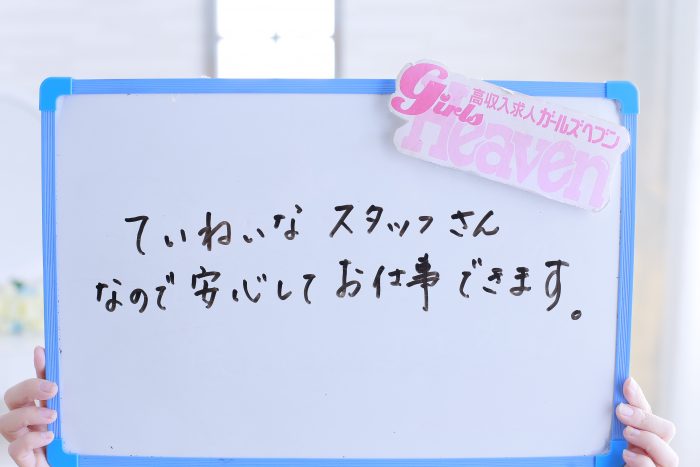 Girls
高収入求人ガールズヘブン
Heaven
ていねいな スタッフさん
なので安心してお仕事できます。